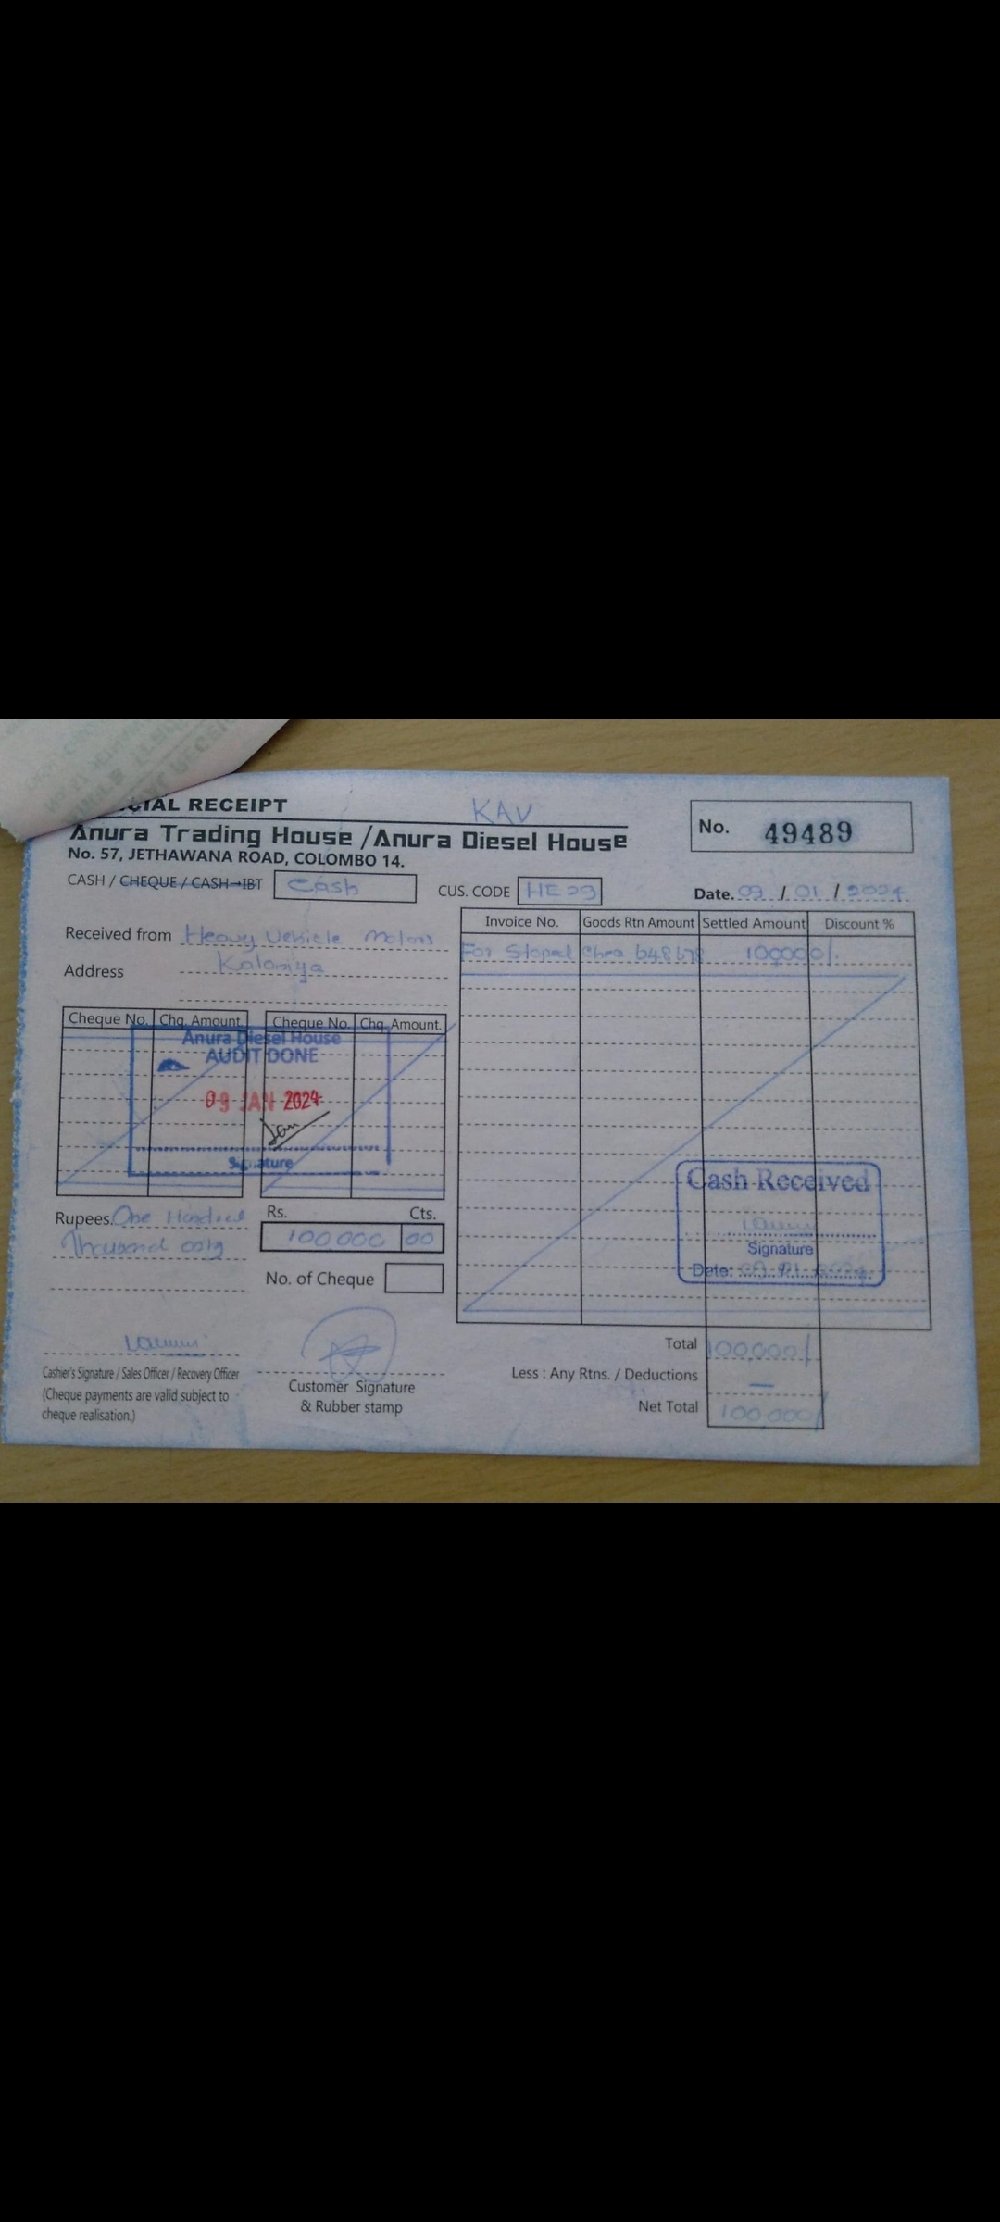 CIAL RECEIPT
KAV
Anura Trading House / Anura Diesel House
No. 57, JETHAWANA ROAD, COLOMBO 14.
No. 49489
CASH / CHEQUE / CASH→IBT Cash
CUS. CODE HE 29
Date. 09 / 01 / 2024
Received from Heavy Vehicle Motors
Address Kalaniya
Invoice No. Goods Rtn Amount Settled Amount Discount %
For Stoped Cheq 648678 100000/.
Cheque No. Chq. Amount Cheque No. Chq. Amount.
Anura Diesel House
AUDIT DONE
09 JAN 2024
Signature
Cash Received
Signature
Date: 09.01.2024
Rupees. One Hundred
Thousand only
Rs. Cts.
100000 00
No. of Cheque
Cashier's Signature / Sales Officer / Recovery Officer
(Cheque payments are valid subject to
cheque realisation.)
Customer Signature
& Rubber stamp
Total 100,000/
Less : Any Rtns. / Deductions —
Net Total 100,000/